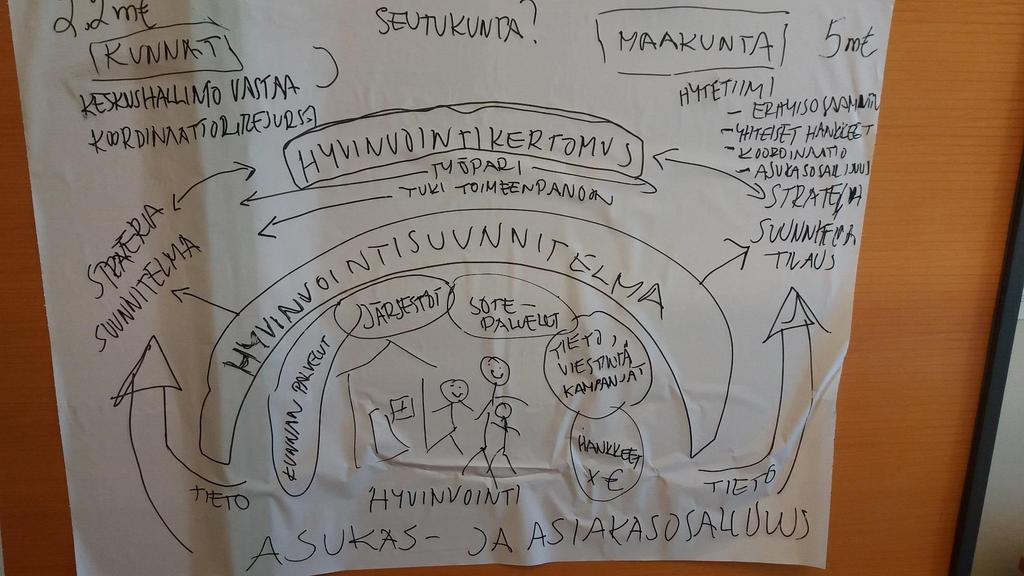 2.2 m€
SEUTUKUNTA?
KUNNAT
MAAKUNTA
5 m€
KESKUSHALLINTO VASTAA
HYTETIIMI
- YHTEISET HANKKEET
- KOORDINAATIO
- ASUKASOSALLISUUS
HYVINVOINTIKERTOMUS
TYÖPARI
TUKI TOIMEENPANOON
STRATEGIA
SUUNNITELMA
STRATEGIA
TILAUS
HYVINVOINTISUUNNITELMA
JÄRJESTÖT
SOTE-
PALVELUT
KUNNAN PALVELUT
TIETO,
VIESTINTÄ
KAMPANJAT
HANKKEET
X €
TIETO
HYVINVOINTI
TIETO
ASUKAS- JA ASIAKASOSALLISUUS